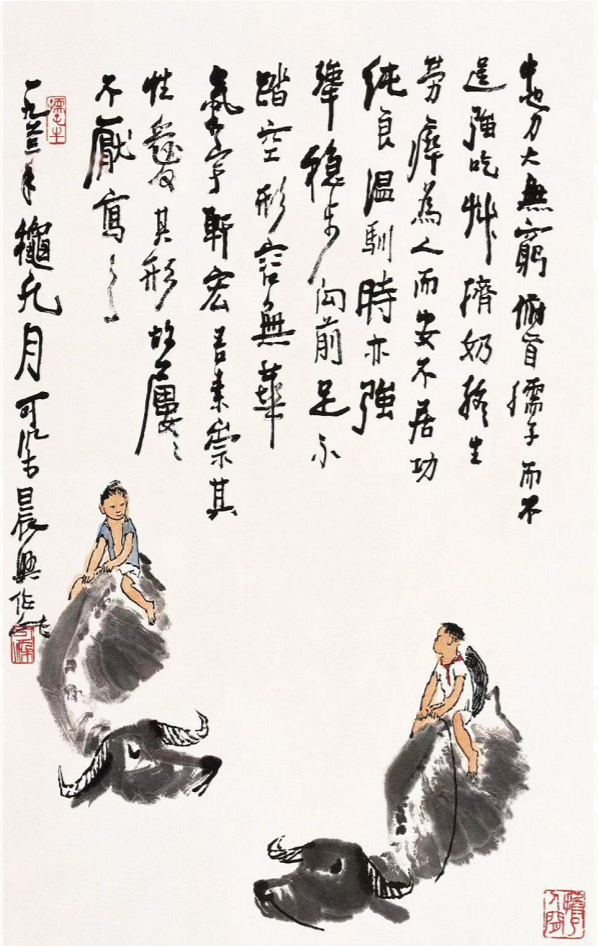 牛也力大無窮俯首孺子而不
逞強吃艸擠奶終生
勞瘁為人而安不居功
純良温馴時亦強
犟穩步向前足不
踏空形容無華
氣宇軒宏吾素崇其
性愛其形故屢〻
不厭寫之
一九六三年龝九月可染晨興作此
孺子牛
可染